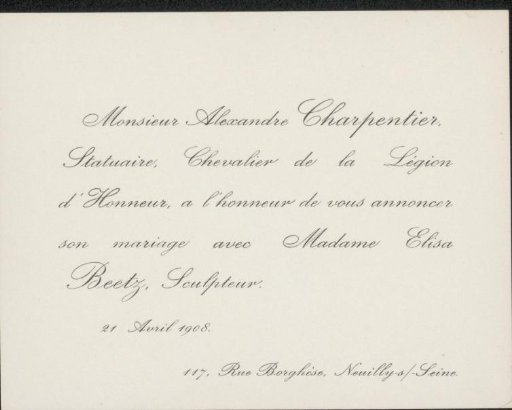 Monsieur Alexandre Charpentier,
Statuaire, Chevalier de la Légion
d'Honneur, a l'honneur de vous annoncer
son mariage avec Madame Elisa
Beetz, Sculpteur.
21 Avril 1908.
117, Rue Borghèse, Neuilly-s/-Seine.